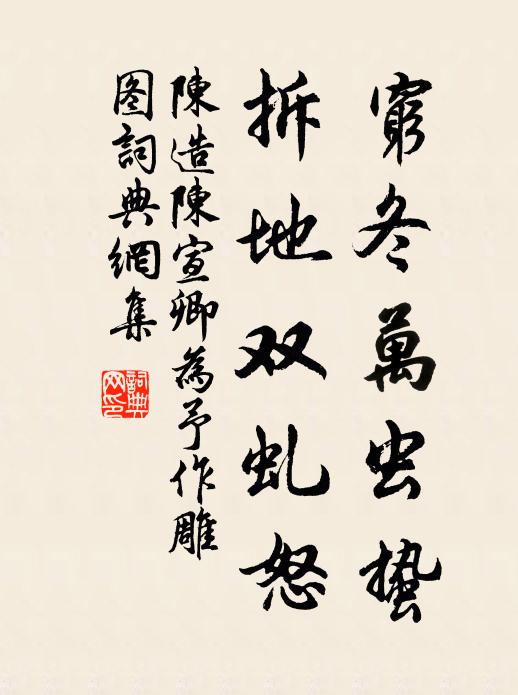 窮冬萬虫蟄
拆地双虬怒
陳造陳宣卿為予作雕
图詞典網集
詞典
网印